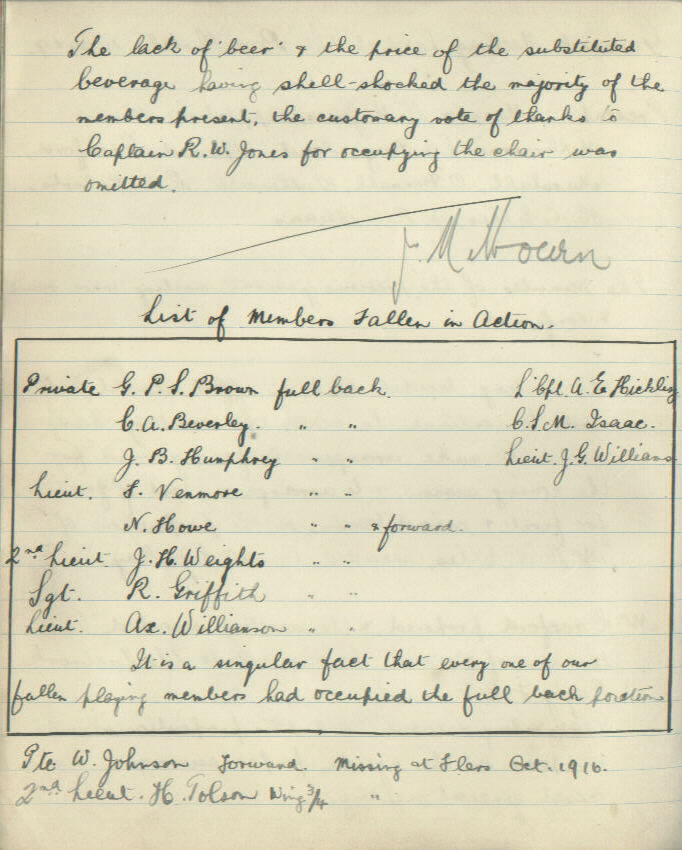 The lack of 'beer' & the price of the substituted
beverage having shell-shocked the majority of the
members present, the customary vote of thanks to
Captain R. W. Jones for occupying the chair was
omitted.
List of Members Fallen in Action.
Private G. P. S. Brown full back. L/Cpl. A. E. Hickling
C. A. Beverley. " " C. S. M. Isaac.
J. B. Humphrey " " Lieut. J. G. Williams
Lieut. F. Venmore " "
N. Howe " " & forward.
2nd Lieut. J. H. Weights " "
Sgt. R. Griffith " "
Lieut. Ax. Williamson " "
It is a singular fact that every one of our
fallen playing members had occupied the full back position
Pte W. Johnson Forward. Missing at Flers Oct. 1916.
2nd Lieut. H. Tolson Wing 3/4 "